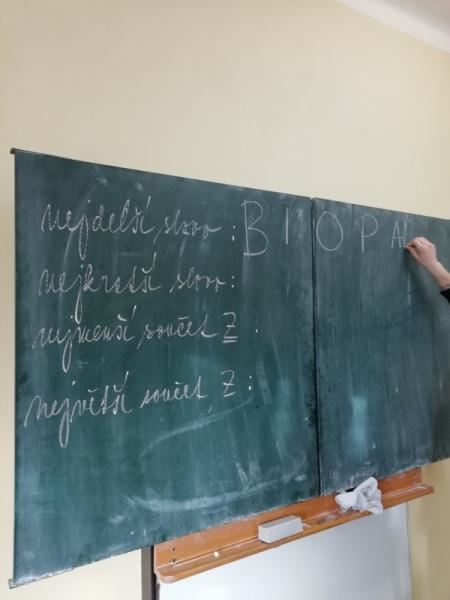 nejdelší slovo: BIOPAL
nejkratší slovo:
nejmenší součet Z:
největší součet Z: